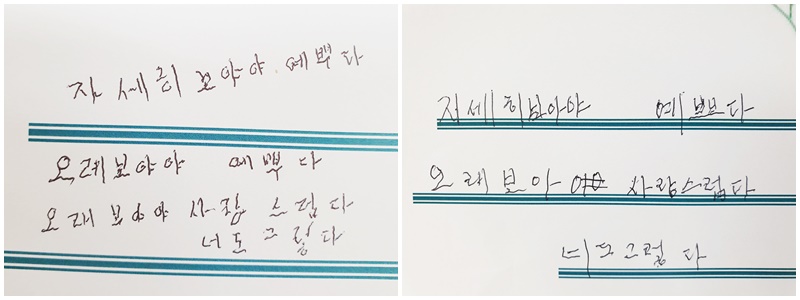 자세히 보아야 예쁘다
오래보아야 예쁘다
오래 보아야 사랑 스럽다
너도 그렇다
저세히보아야 예쁘다
오래보아 사랑스럽다
너도그렇다